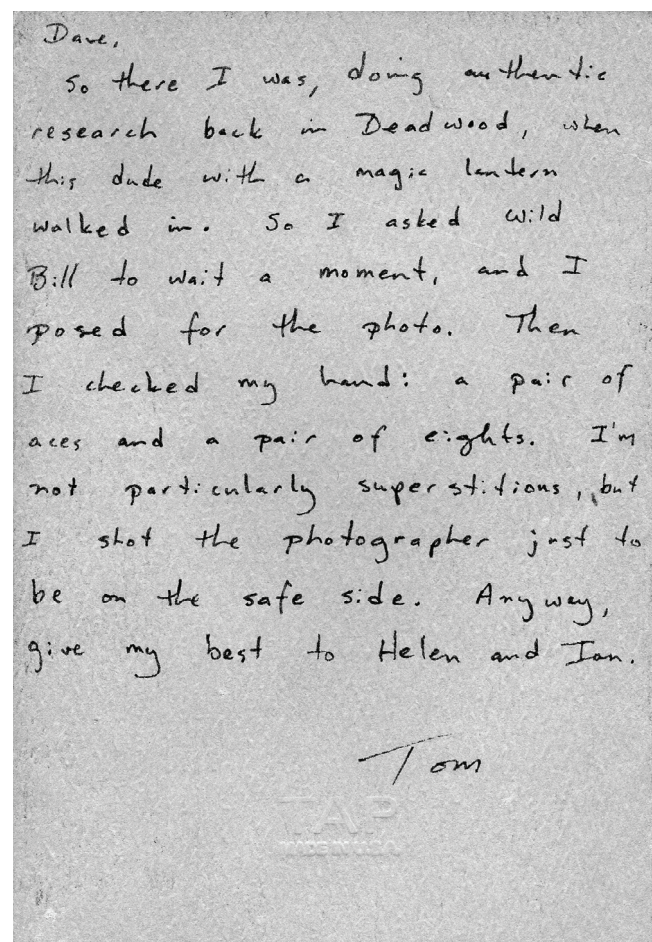 Dave,
So there I was, doing authentic
research back in Deadwood, when
this dude with a magic lantern
walked in. So I asked Wild
Bill to wait a moment, and I
posed for the photo. Then
I checked my hand: a pair of
aces and a pair of eights. I'm
not particularly superstitious, but
I shot the photographer just to
be on the safe side. Anyway,
give my best to Helen and Ian.
Tom
TAP
MADE IN U.S.A.